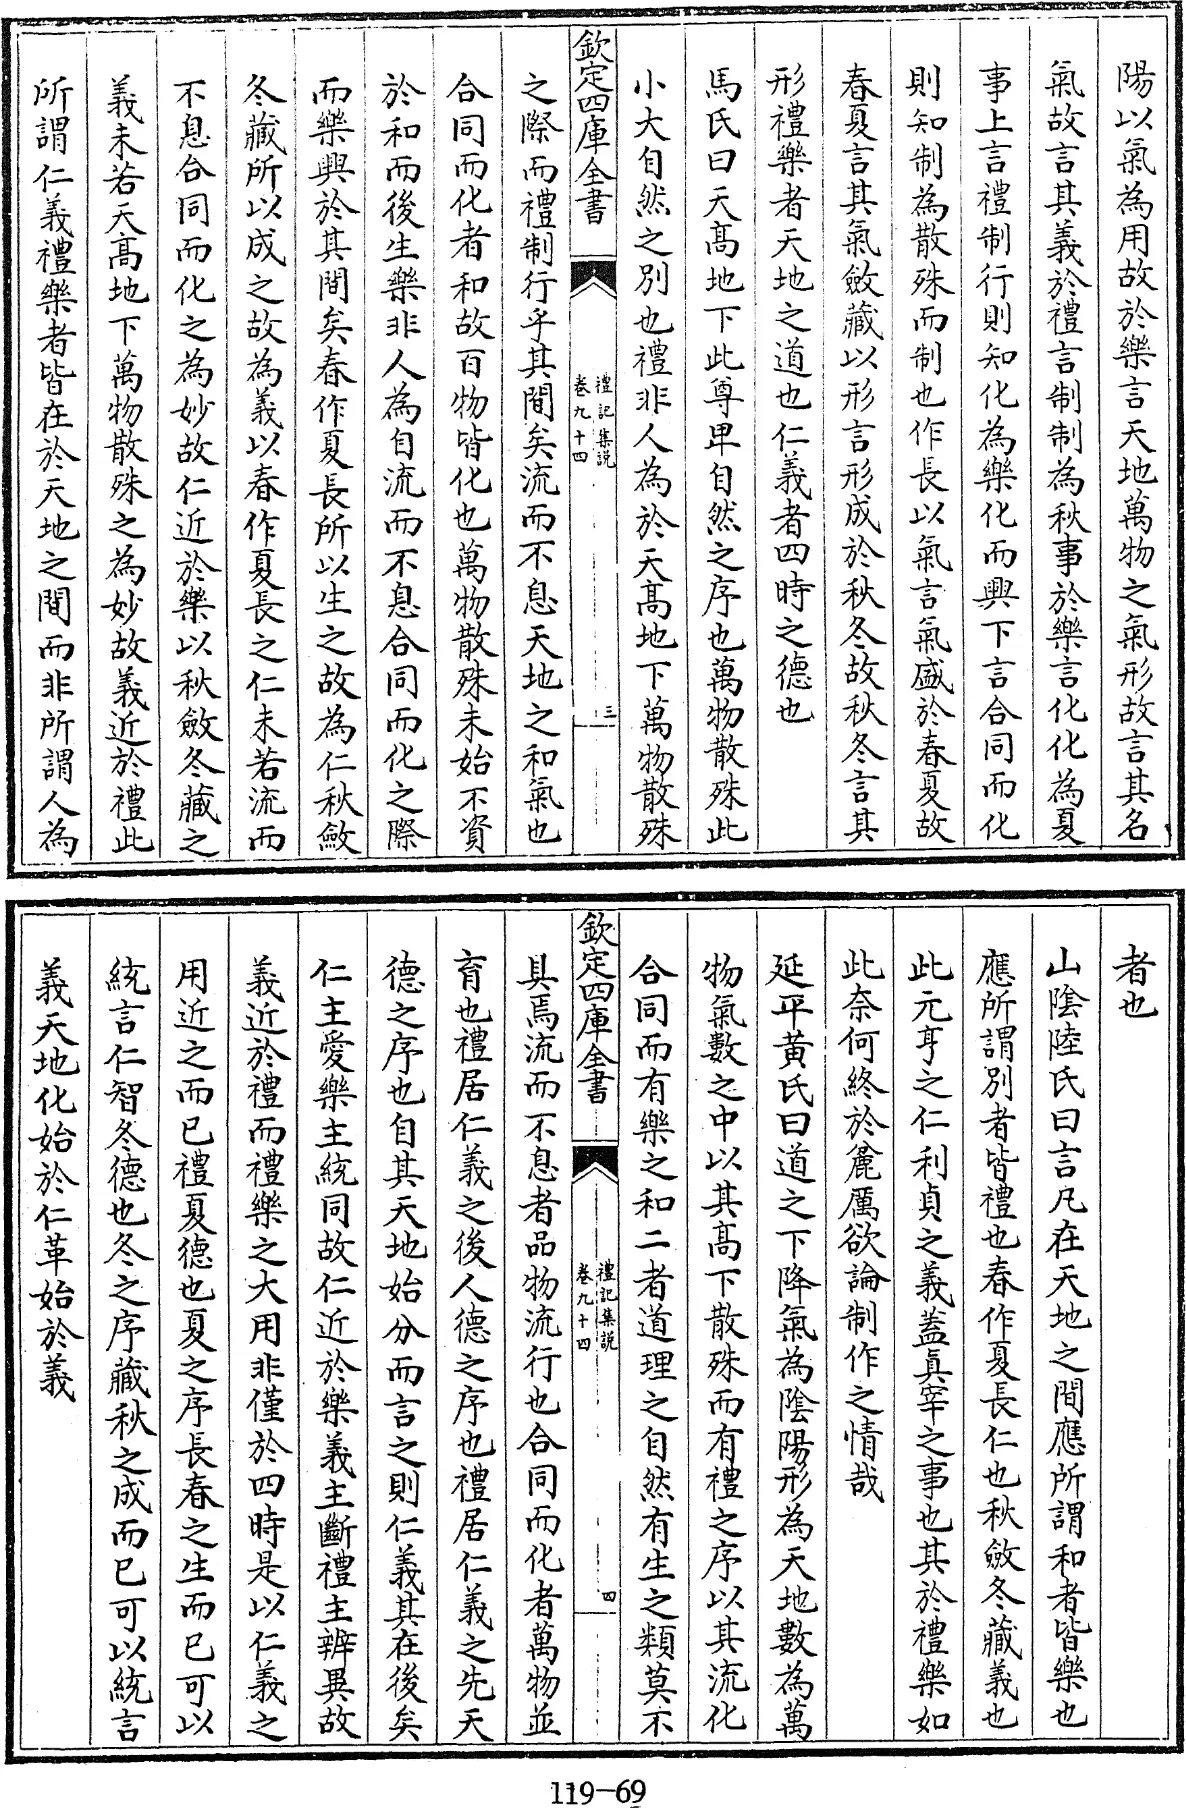 陽以氣為用故於樂言天地萬物之氣形故言其名
氣故言其義於禮言制制為秋事於樂言化化為夏
事上言禮制行則知化為樂化而興下言合同而化
則知制為散殊而制也作長以氣言氣盛於春夏故
春夏言其氣斂藏以形言形成於秋冬故秋冬言其
形禮樂者天地之道也仁義者四時之德也
馬氏曰天高地下此尊卑自然之序也萬物散殊此
小大自然之別也禮非人為於天高地下萬物散殊
欽定四庫全書
禮記集説
卷九十四
三
之際而禮制行乎其間矣流而不息天地之和氣也
合同而化者和故百物皆化也萬物散殊未始不資
於和而後生樂非人為自流而不息合同而化之際
而樂興於其間矣春作夏長所以生之故為仁秋斂
冬藏所以成之故為義以春作夏長之仁未若流而
不息合同而化之為妙故仁近於樂以秋斂冬藏之
義未若天高地下萬物散殊之為妙故義近於禮此
所謂仁義禮樂者皆在於天地之間而非所謂人為
者也
山陰陸氏曰言凡在天地之間應所謂和者皆樂也
應所謂別者皆禮也春作夏長仁也秋斂冬藏義也
此元亨之仁利貞之義蓋真宰之事也其於禮樂如
此奈何終於麄厲欲論制作之情哉
延平黃氏曰道之下降氣為陰陽形為天地數為萬
物氣數之中以其高下散殊而有禮之序以其流化
合同而有樂之和二者道理之自然有生之類莫不
欽定四庫全書
禮記集説
卷九十四
四
具焉流而不息者品物流行也合同而化者萬物並
育也禮居仁義之後人德之序也禮居仁義之先天
德之序也自其天地始分而言之則仁義其在後矣
仁主愛樂主統同故仁近於樂義主斷禮主辨異故
義近於禮而禮樂之大用非僅於四時是以仁義之
用近之而已禮夏德也夏之序長春之生而已可以
統言仁智冬德也冬之序藏秋之成而已可以統言
義天地化始於仁革始於義
119-69